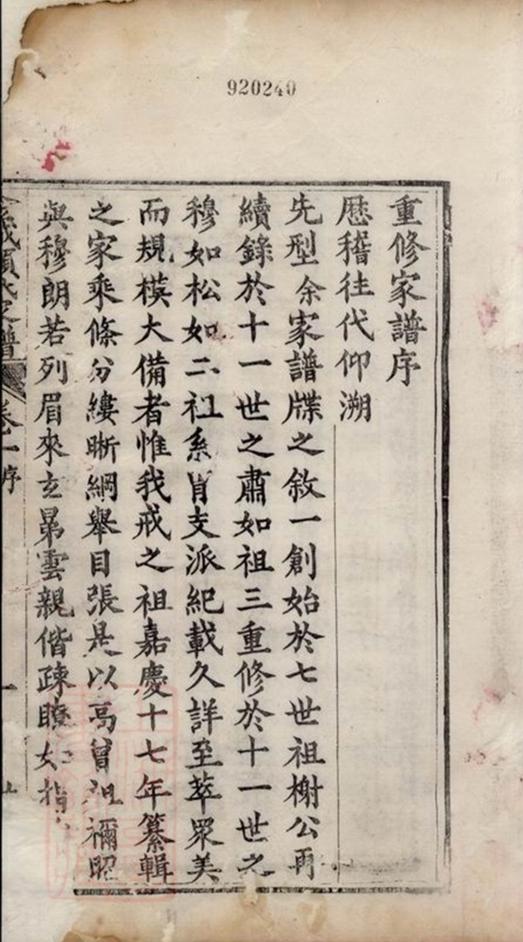 920240
重修家譜序
歷稽往代仰溯
先型余家譜牒之敘一創始於七世祖榭公再
續錄於十一世之肅如祖三重修於十一世之
穆如松如二祖系肖支派紀載久詳至萃眾美
而規模大備者惟我戒之祖嘉慶十七年纂輯
之家乘條分縷晰綱舉目張是以高曾祖禰昭
與穆朗若列眉來玄昴雲親偕疎瞭如指
氏支譜
卷一序
一